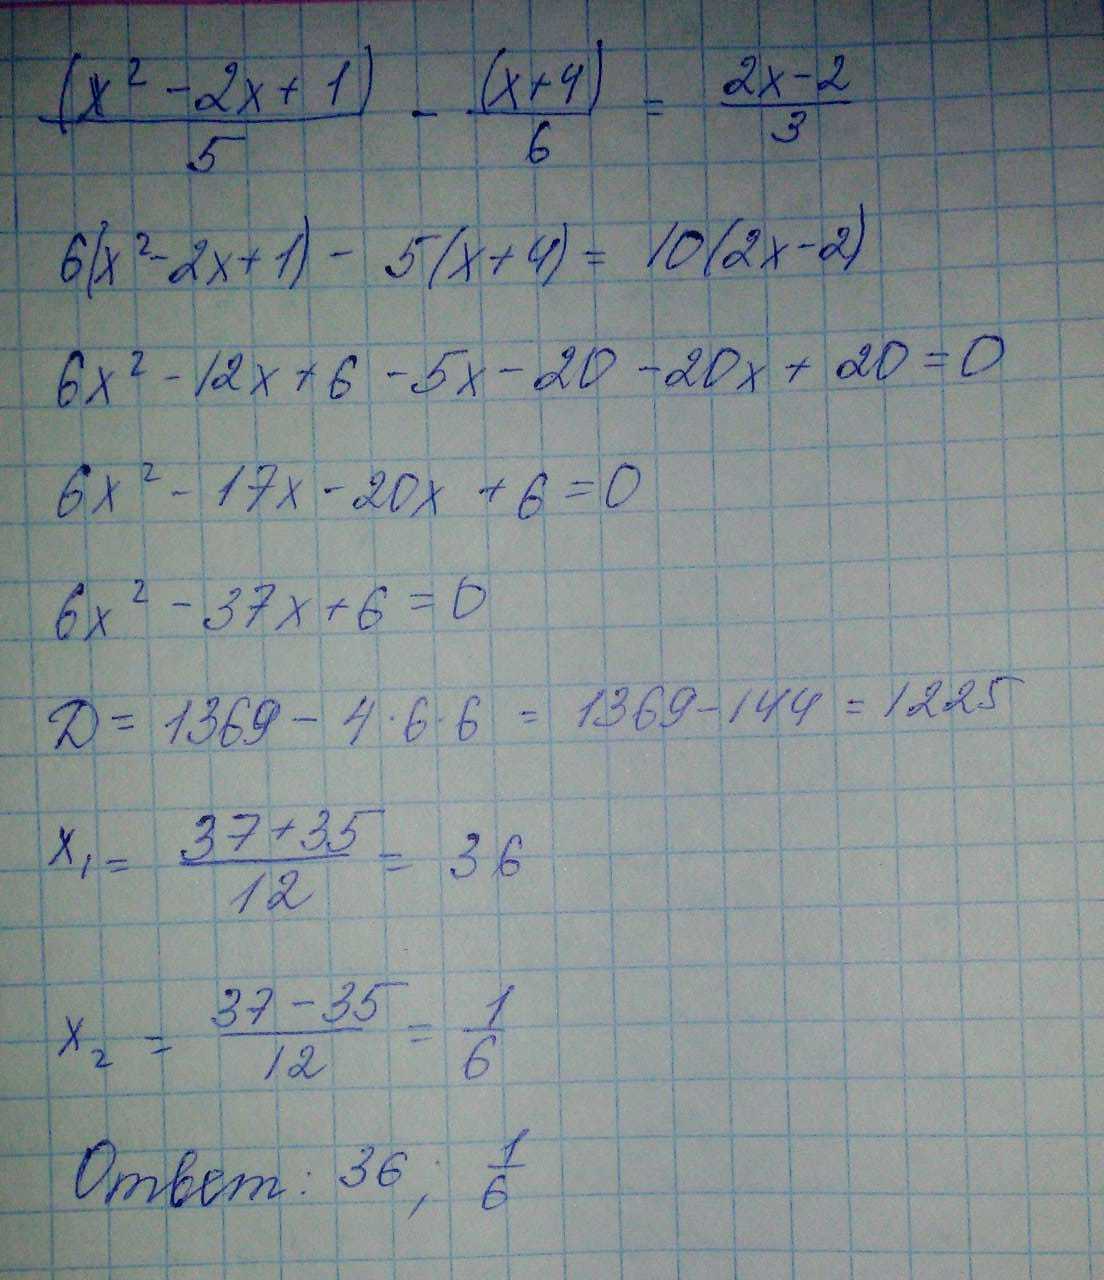 (x² - 2x + 1)/5 - (x+4)/6 = (2x-2)/3
6(x² - 2x + 1) - 5(x+4) = 10(2x-2)
6x² - 12x + 6 - 5x - 20 - 20x + 20 = 0
6x² - 17x - 20x + 6 = 0
6x² - 37x + 6 = 0
Д = 1369 - 4·6·6 = 1369 - 144 = 1225
x₁ = (37+35)/12 = 36
x₂ = (37-35)/12 = 1/6
Ответ: 36; 1/6